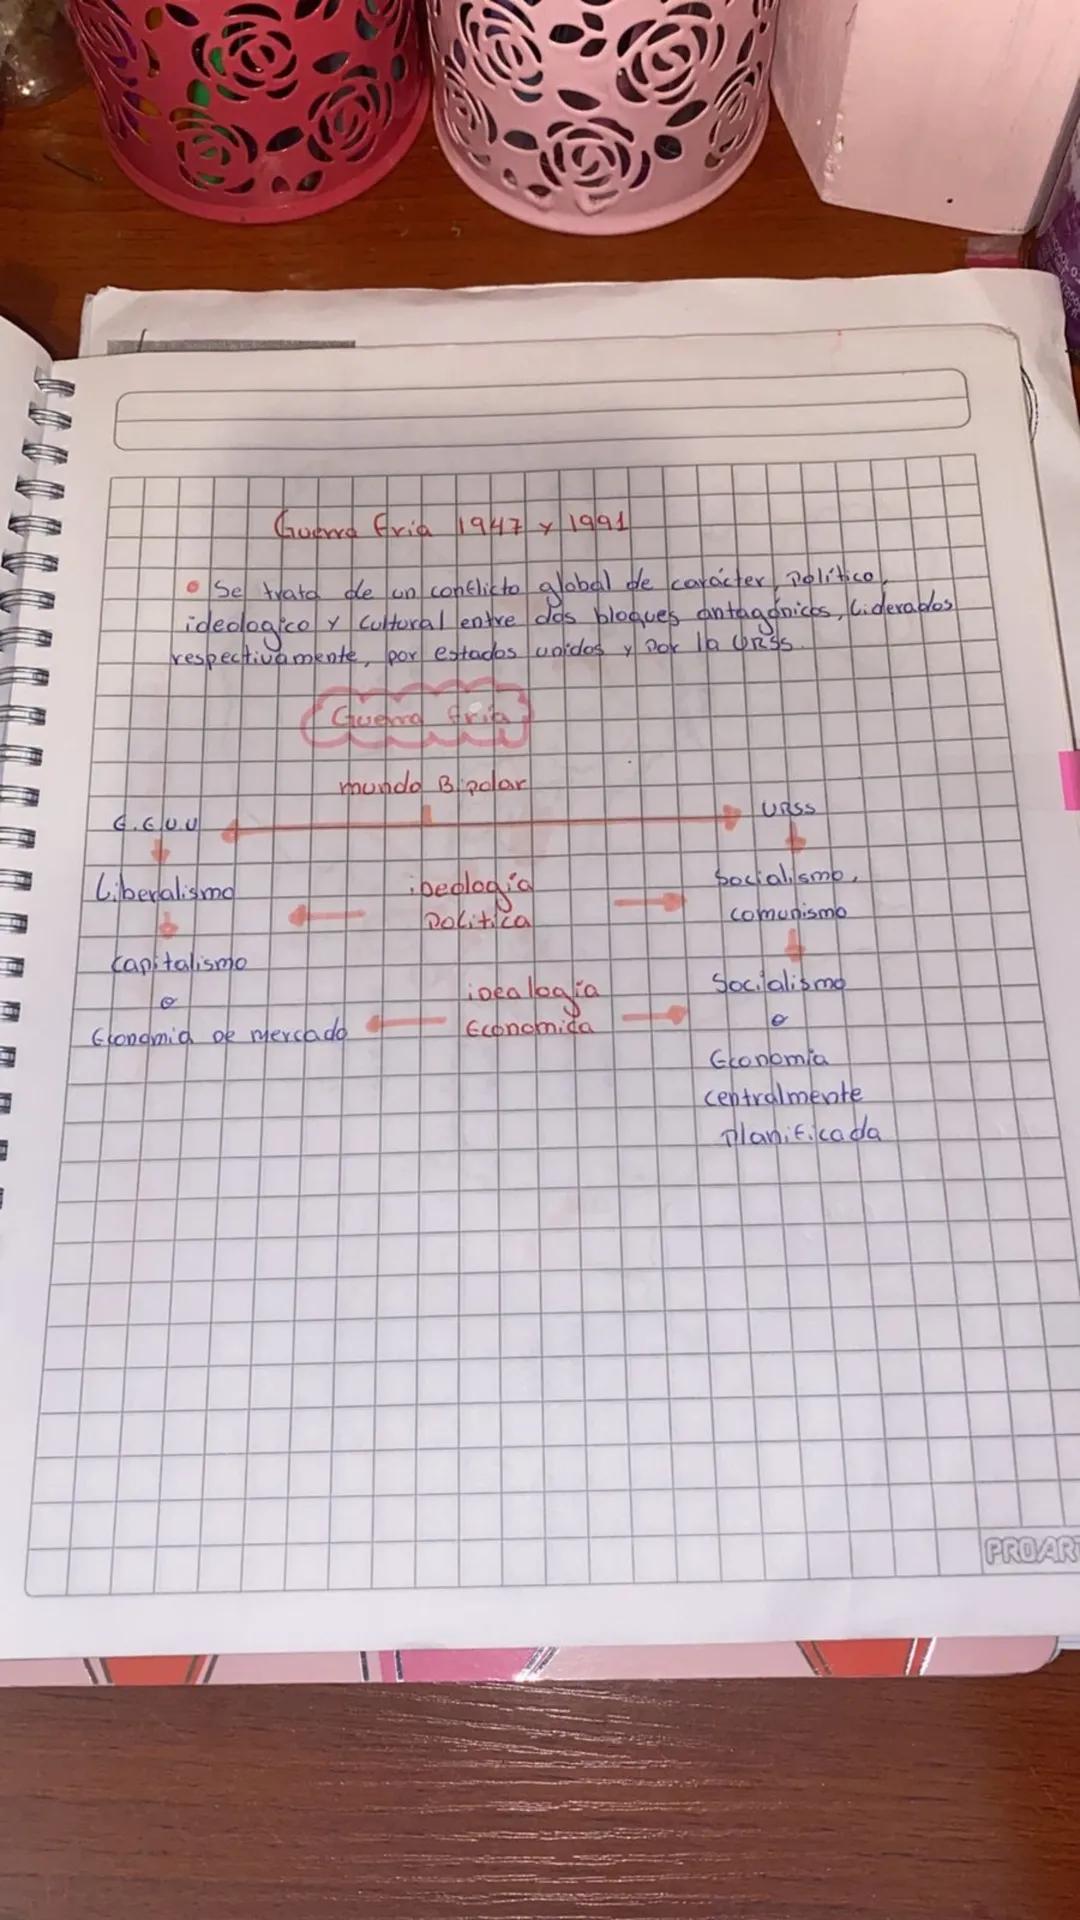 Guerra fria 1947 y 1991
Se trata de un conflicto global de carácter, Político,
ideologico y cultural entre dos bloques antagónicos, Liderados
respectivamente, por estados unidos y Por la URSS.
Guerra fria
mundo Bipolar
E.E.U.U
URSS
Liberalismo
ideología
Política
Socialismo,
comunismo
capitalismo
o
Economia de mercado
idealogía
Economica
Socialismo
o
Economia
centralmente
Planificada
PROART